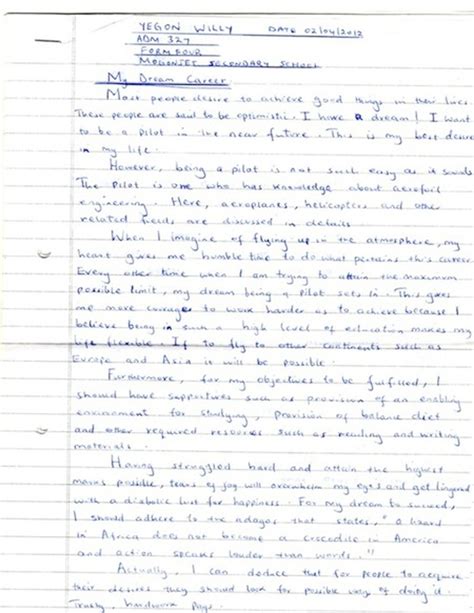 YEGON WILLY DATE 02/04/2012
ADM 327
FORM FOUR
MOGONJET SECONDARY SCHOOL
My Dream Career
Most people desire to achieve good things in their lives.
These people are said to be optimistic. I have a dream! I want
to be a pilot in the near future. This is my best desire
in my life.
However, being a pilot is not such easy as it sounds
The pilot is one who has knowledge about aerofoil
engineering. Here, aeroplanes, helicopters and other
related fields are discussed in details
When I imagine of flying up in the atmosphere, my
heart gives me humble time to do what pertains this career.
Every other time when I am trying to attain the maximum
possible limit, my dream being a pilot sets in. This gives
me more courage to work harder as to achieve because I
believe being in such a high level of education makes my
life flexible. If to fly to other continents such as
Europe and Asia it will be possible.
Furthermore, for my objectives to be fulfilled, I
should have supportives such as provision of an enabling
environment for studying, provision of balance diet
and other required resources such as reading and writing
materials.
Having struggled hard and attain the highest
marks possible, tears of joy will overwhelm my eyes and get lingered
with a diabolic lust for happiness. For my dream to succeed,
I should adhere to the adages that states, "a lizard
in Africa does not become a crocodile in America
and action speaks louder than words."
Actually, I can deduce that for people to acquire
their desires they should look for possible ways of doing it.
Truely, hardwork pays.